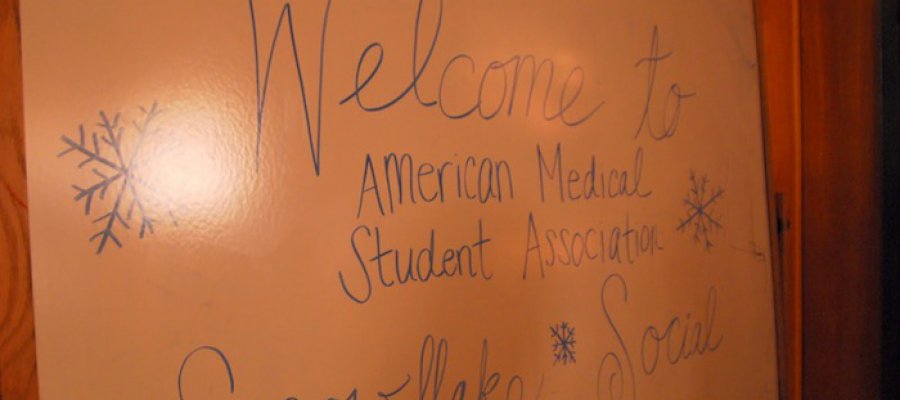 Welcome to
American Medical
Student Association
Snowflake Social